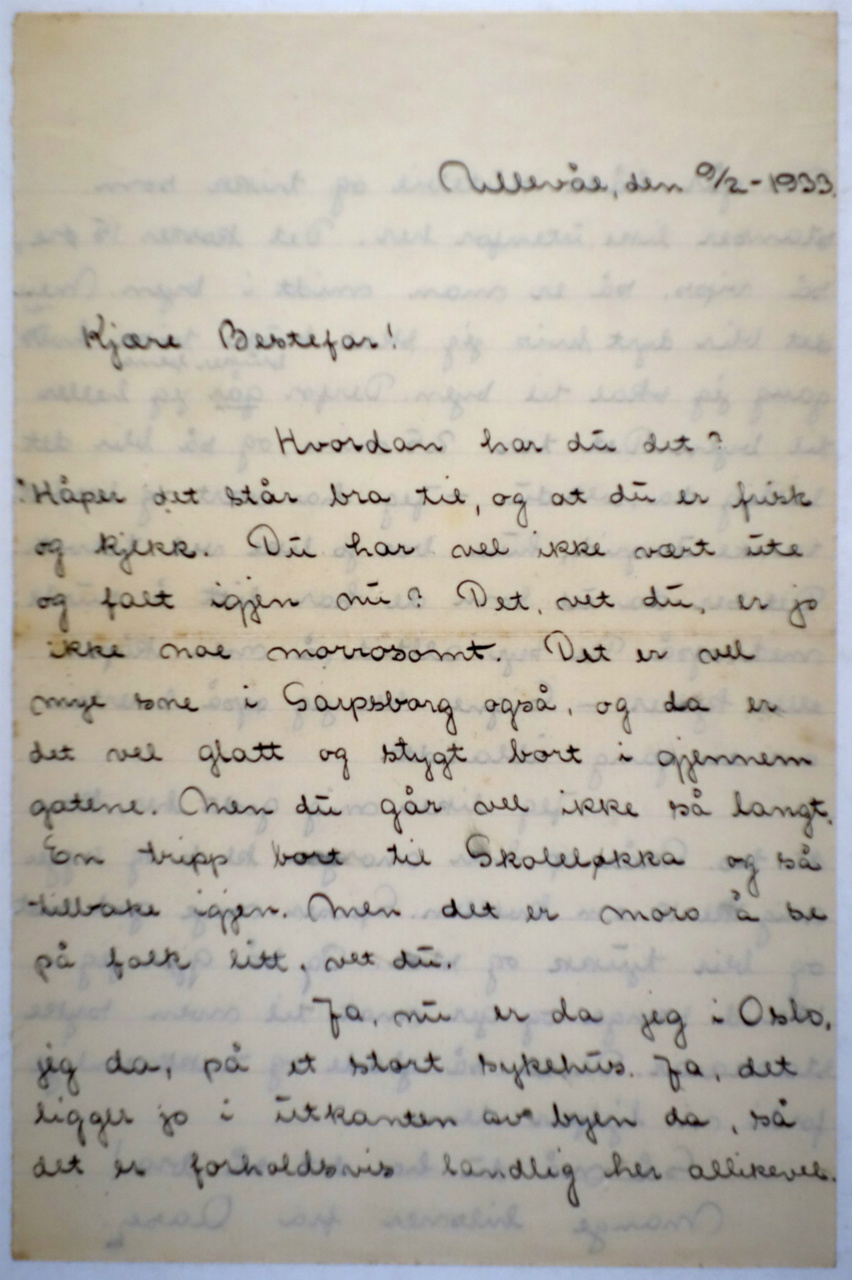 Ullevål, den 9/2-1933.
Kjære Bestefar!
Hvordan har du det?
Håper det står bra til, og at du er frisk
og kjekk. Du har vel ikke vært ute
og falt igjen nu? Det, vet du, er jo
ikke noe morrosomt. Det er vel
mye sne i Sarpsborg også, og da er
det vel glatt og stygt bort i gjennem
gatene. Men du går vel ikke så langt.
En tripp bort til Skoleløkka og så
tilbake igjen. Men det er moro å se
på folk litt, vet du.
Ja, nu er da jeg i Oslo,
jeg da, på et stort sykehus. Ja, det
ligger jo i utkanten av byen da, så
det er forholdsvis landlig her allikevel.